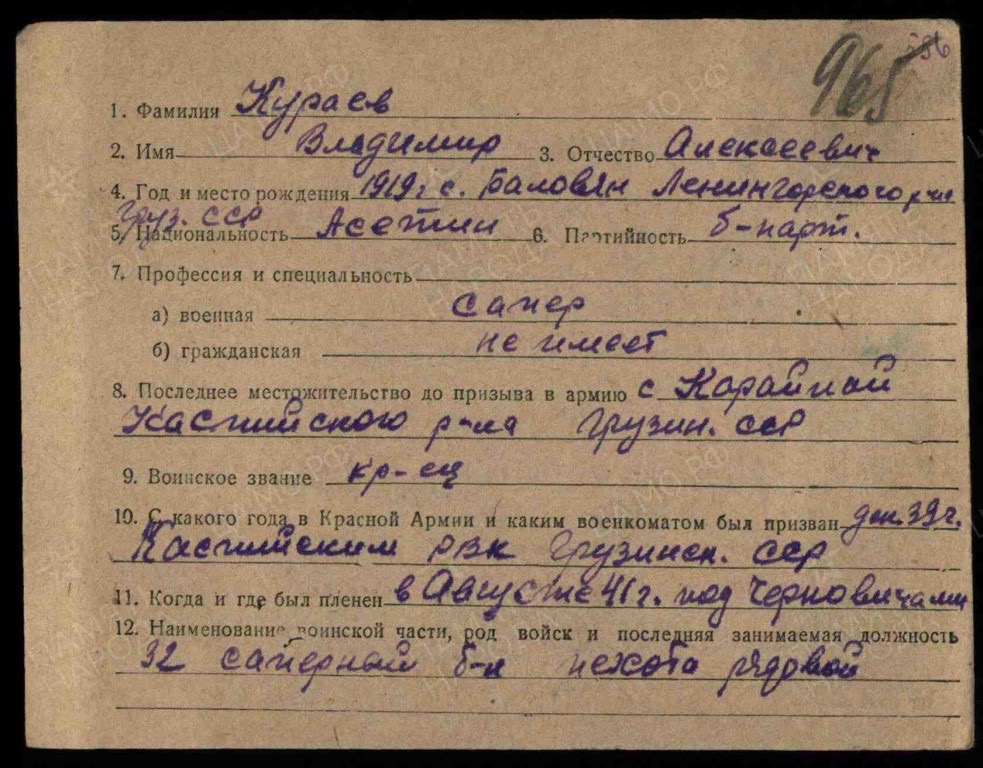 965
1. Фамилия Кураев
2. Имя Владимир 3. Отчество Алексеевич
4. Год и место рождения 1919 г. с. Баловян Ленингорского р-на
Груз. ССР
5. Национальность Асетин 6. Партийность б-парт.
7. Профессия и специальность
а) военная сапер
б) гражданская не имеет
8. Последнее местожительство до призыва в армию с Карайпай
Каспийского р-на Грузин. ССР
9. Воинское звание кр-ец
10. С какого года в Красной Армии и каким военкоматом был призван дек. 39 г.
Каспийским РВК Грузинск. ССР
11. Когда и где был пленен в Августе 41 г. под Черновичами
12. Наименование воинской части, род войск и последняя занимаемая должность
32 саперный б-н пехота рядовой